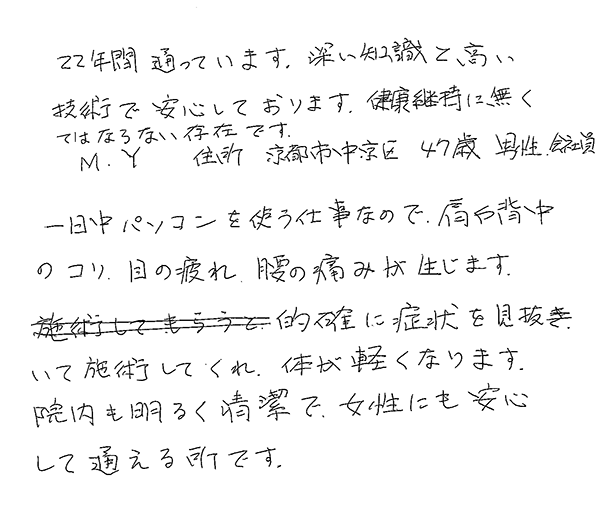 22年間通っています。深い知識と、高い
技術で安心しております。健康維持に、無く
てはならない存在です。
M.Y 住所 京都市中京区 47歳 男性、会社員
一日中パソコンを使う仕事なので、肩や背中
のコリ、目の疲れ、腰の痛みが生じます。
施術してもらうと的確に症状を見抜き
いて施術してくれ、体が軽くなります。
院内も明るく清潔で、女性にも安心
して通える所です。